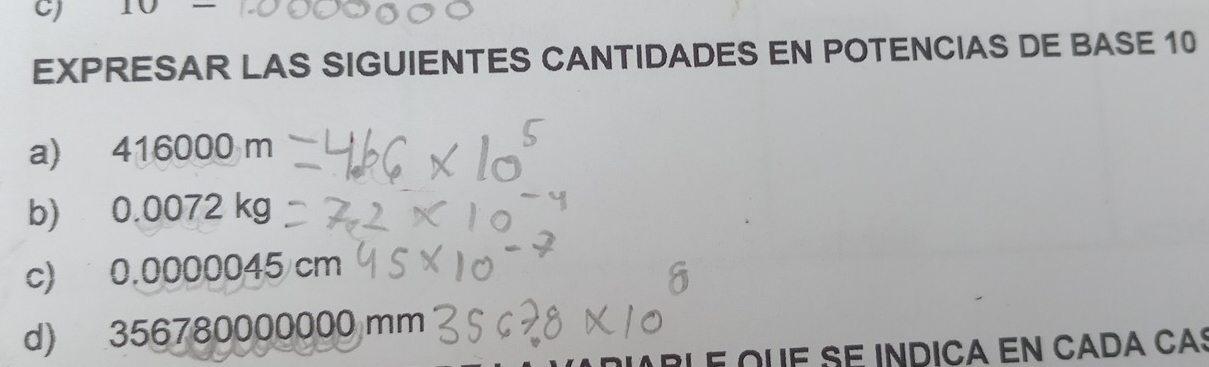 c) 10 = 1.0000000
EXPRESAR LAS SIGUIENTES CANTIDADES EN POTENCIAS DE BASE 10
a) 416000 m = 4.66 × 10⁵
b) 0.0072 kg = 7.2 × 10⁻⁴
c) 0.0000045 cm 45 × 10⁻⁷
d) 356780000000 mm 3567.8 × 10⁸
VARIABLE QUE SE INDICA EN CADA CAS